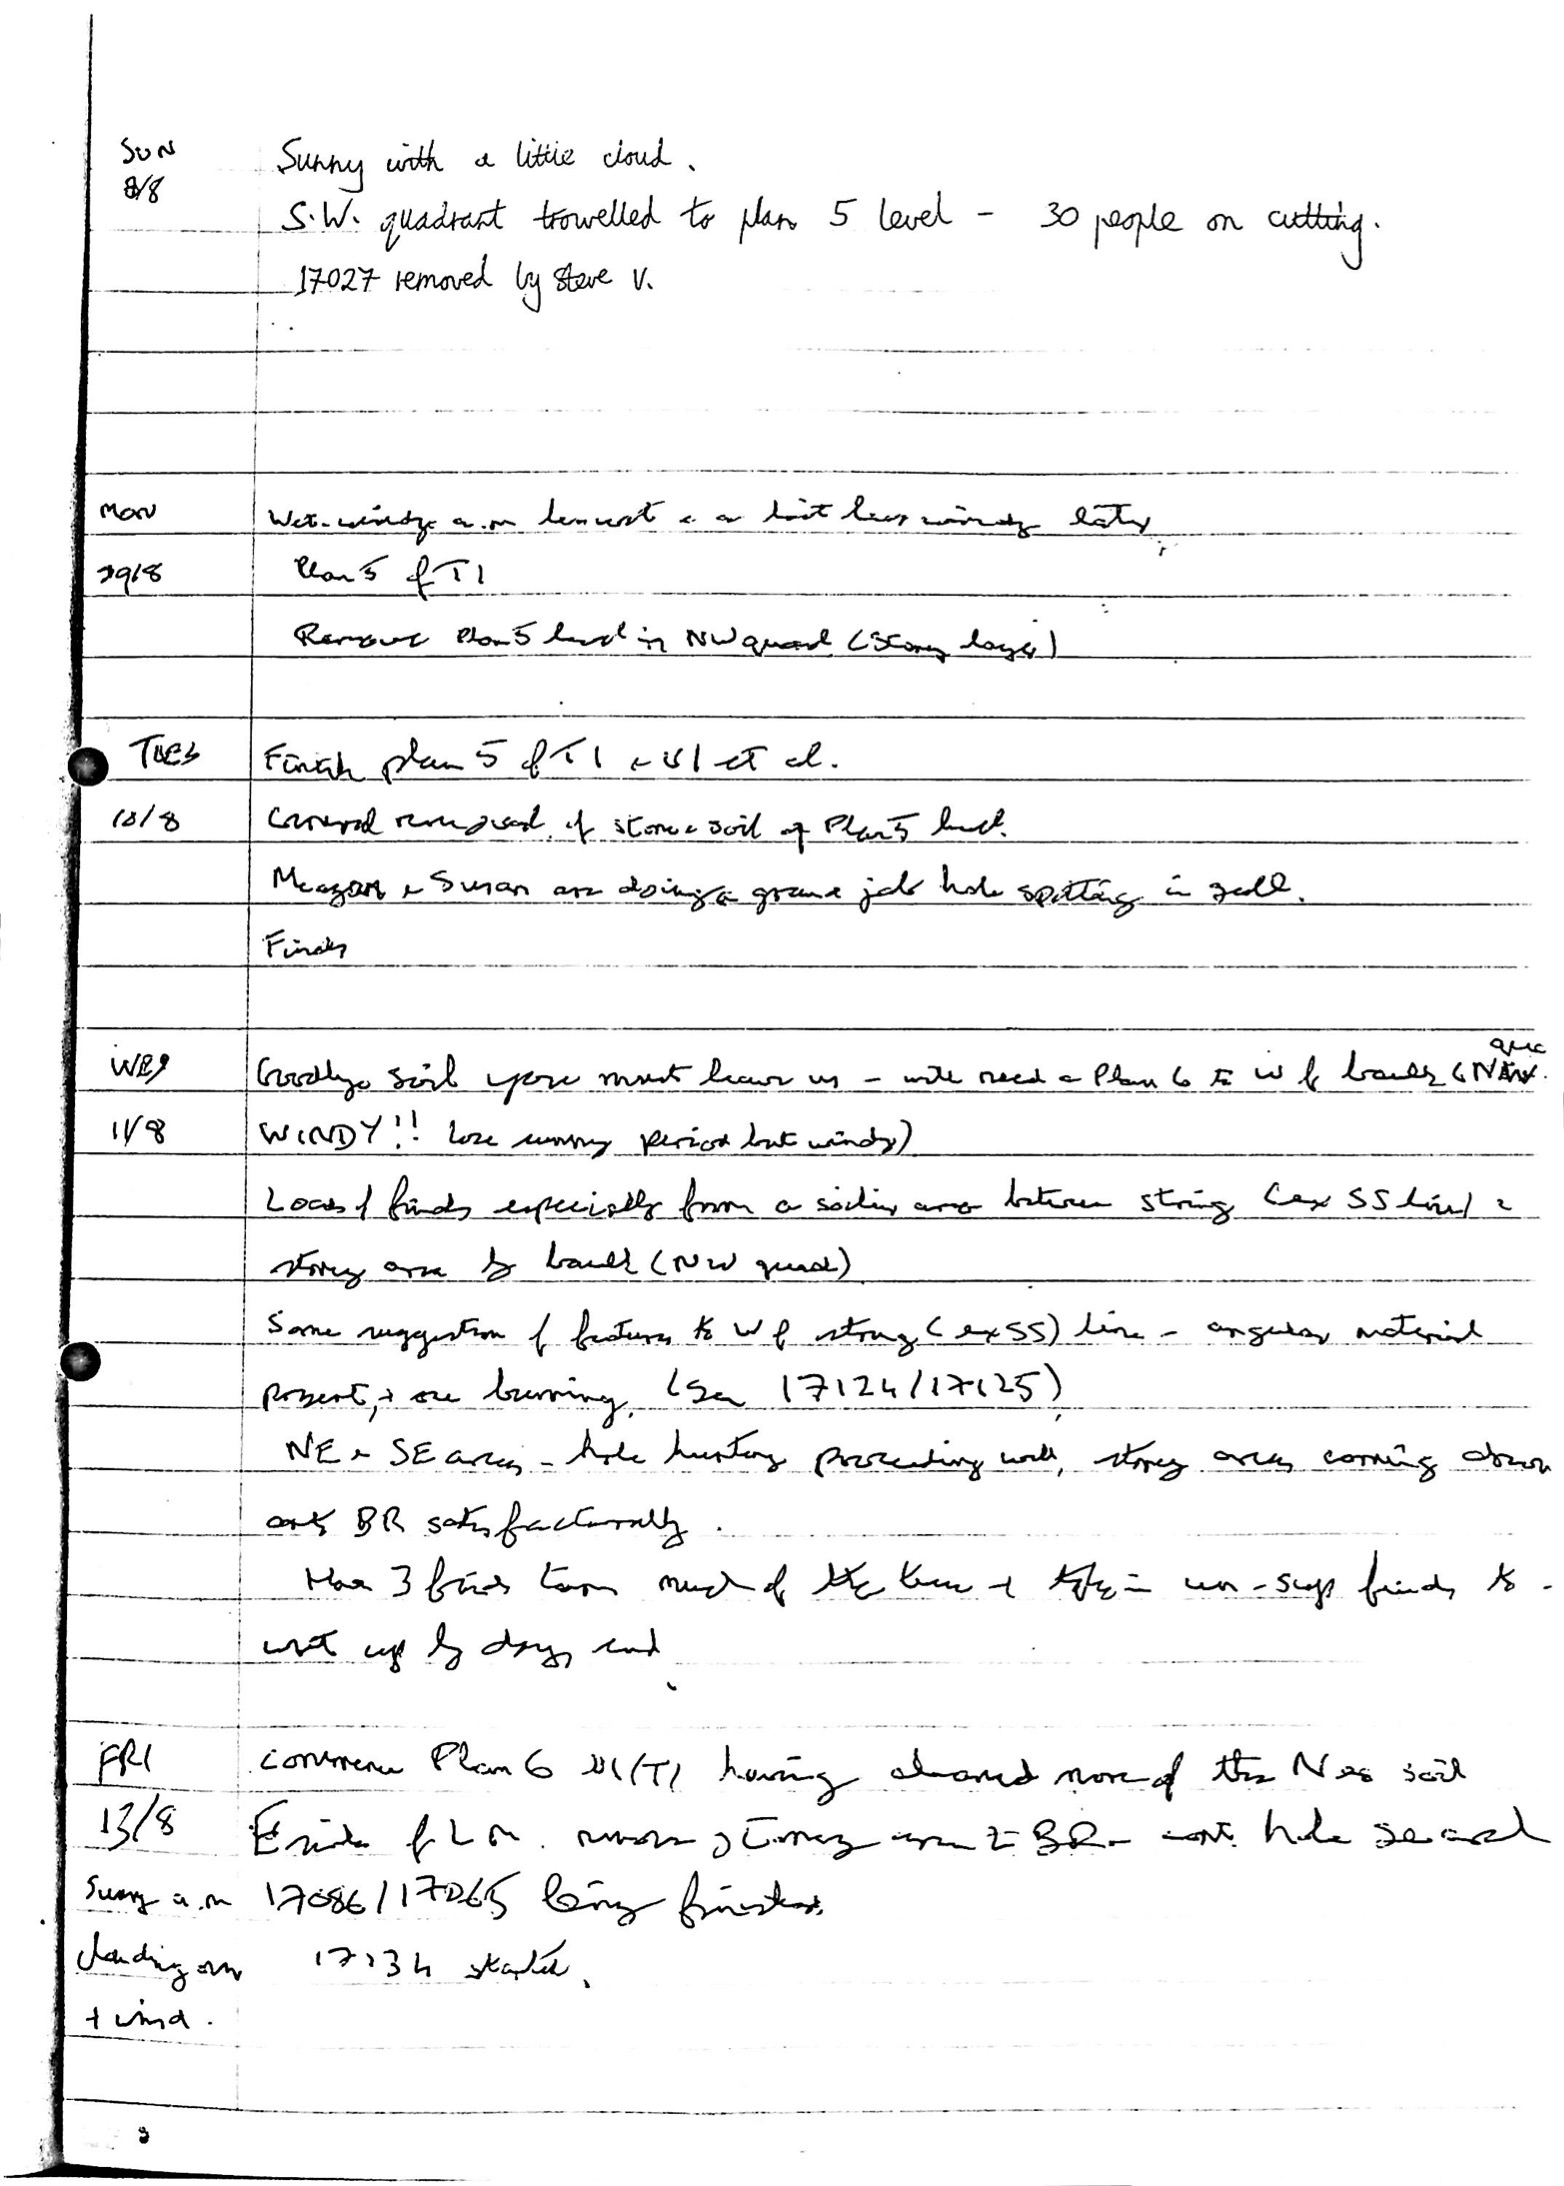 SUN Sunny with a little cloud.
8/8 S.W. quadrant trowelled to plan 5 level - 30 people on cutting.
17027 removed by Steve V.
MON Wet + windy a.m a bit less windy later
9/8 Plan 5 of T1
Remove Plan 5 level in NW quad (stoney layer)
TUES Finish plan 5 of T1 + U1 et al.
10/8 removal of stone + soil of Plan 5 level.
Susan are doing a grand job hole spotting in
Finds
WED Goodbye soil you must leave us - will need a Plan 6 to W of baulk (NW quad
11/8 WINDY!! sunny period but windy)
Loads of finds especially from a soily area between string (ex SS line) +
stoney area by baulk (NW quad)
Some suggestion of features to W of string (ex SS) line - angular material
present, + burning. (See 17124/17125)
NE + SE areas - hole hunting proceeding well, stoney areas coming down
onto BR satisfactorally.
Have 3 finds much of the time + finds to
write up by days end
FRI commence Plan 6 U1/T1 having cleared more of the soil
13/8 E side of remove stoney area to BR - cont. hole search
Sunny a.m 17086/17065 being finished.
clouding over 17134 started.
+ wind.